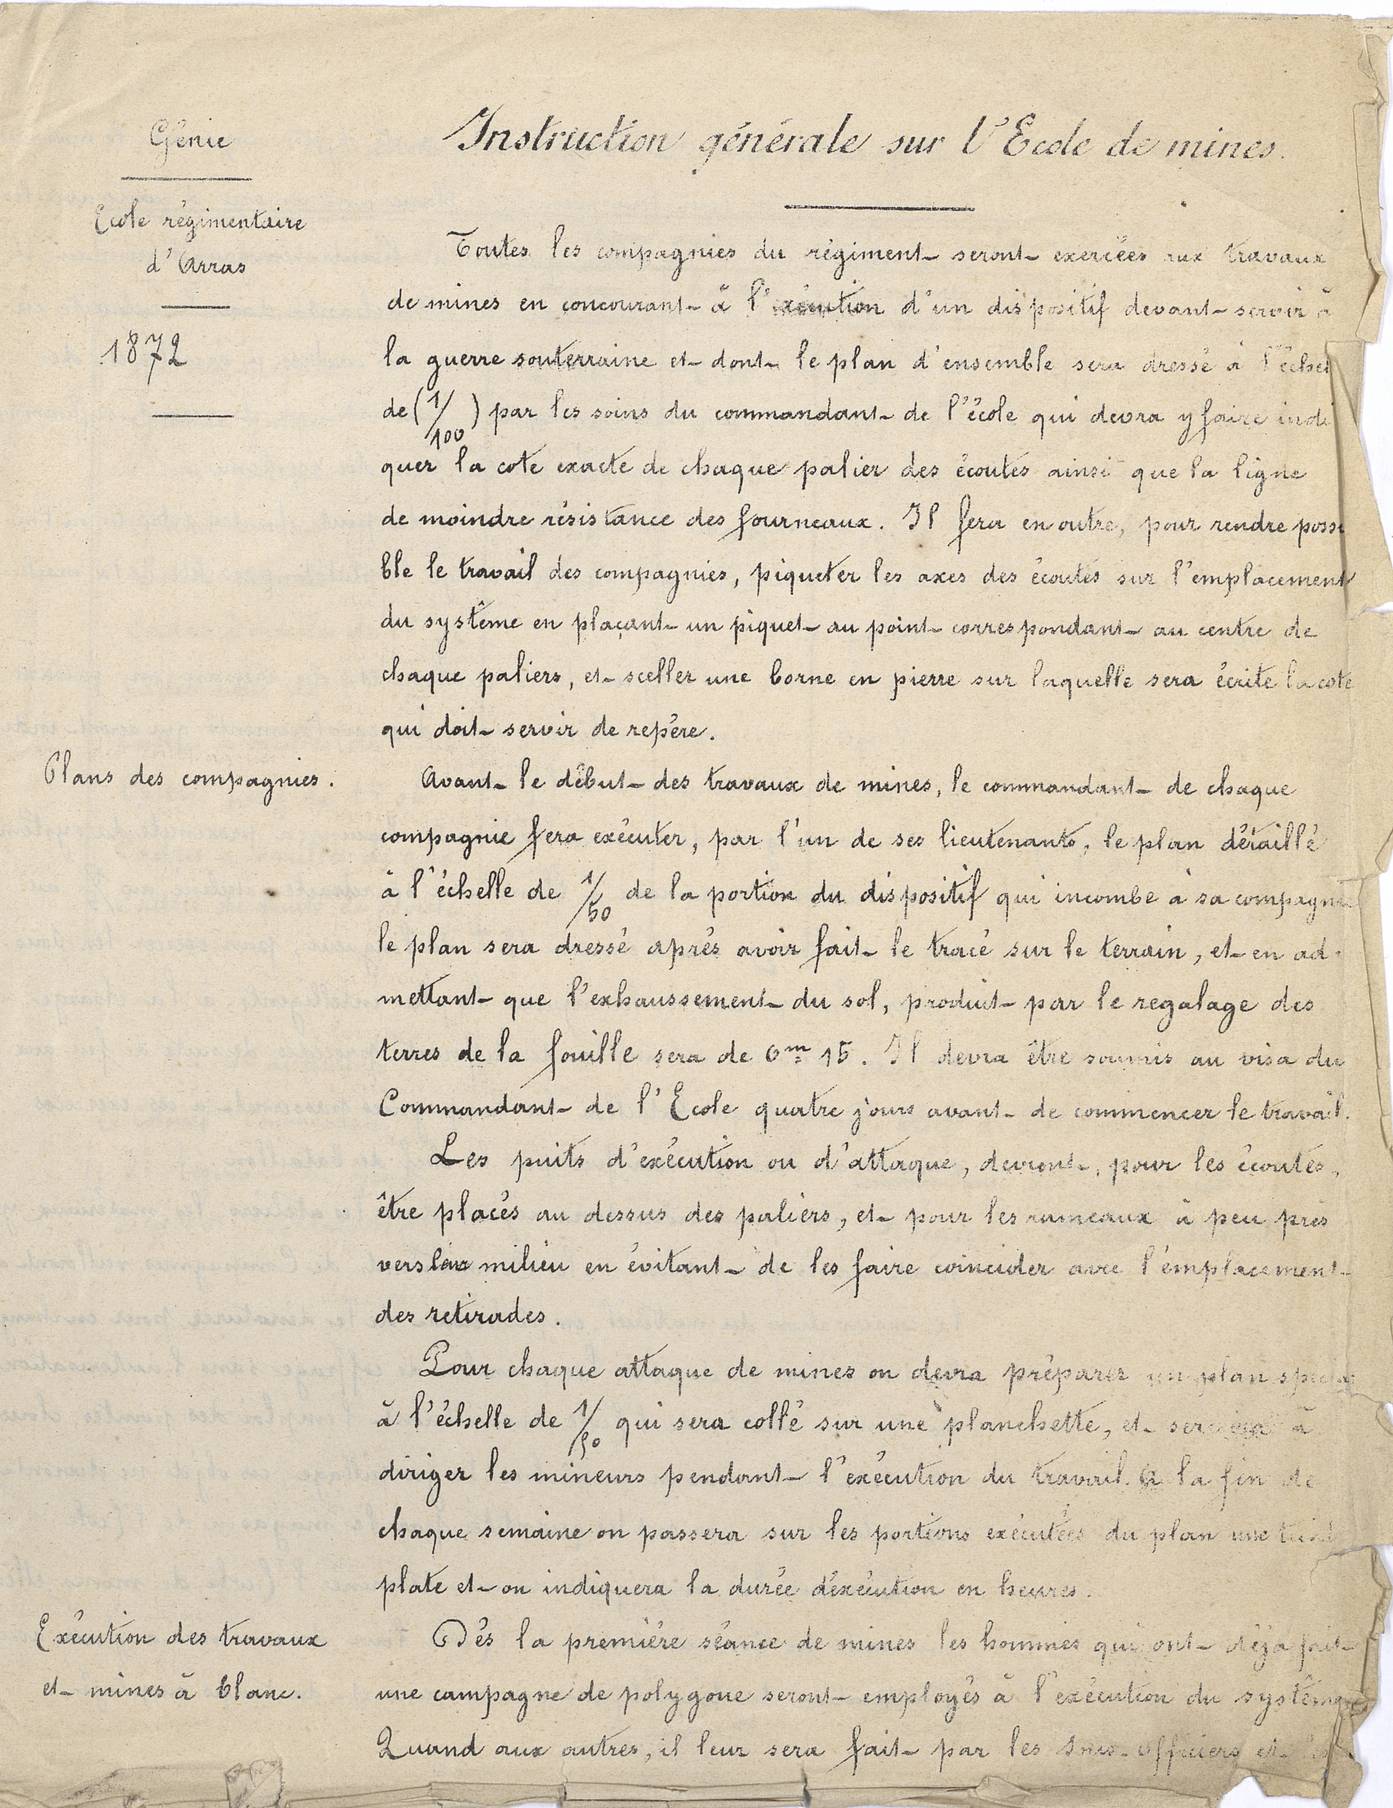 Génie
Ecole régimentaire
d'Arras
1872
Instruction générale sur l'Ecole de mines.
Toutes les compagnies du régiment seront exercées aux travaux
de mines en concourant à l'exécution d'un dispositif devant servir à
la guerre souterraine et dont le plan d'ensemble sera dressé à l'échel
de (1/100) par les soins du commandant de l'école qui devra y faire indi
quer la cote exacte de chaque palier des écoutes ainsi que la ligne
de moindre résistance des fourneaux. Il fera en outre, pour rendre possi
ble le travail des compagnies, piqueter les axes des écoutes sur l'emplacement
du système en plaçant un piquet au point correspondant au centre de
chaque paliers, et sceller une borne en pierre sur laquelle sera écrite la cote
qui doit servir de repère.
Plans des compagnies.
Avant le début des travaux de mines, le commandant de chaque
compagnie fera exécuter, par l'un de ses lieutenants, le plan détaillé
à l'échelle de 1/50 de la portion du dispositif qui incombe à sa compagnie
le plan sera dressé après avoir fait le tracé sur le terrain, et en ad-
mettant que l'exhaussement du sol, produit par le regalage des
terres de la fouille sera de 0m 15. Il devra être soumis au visa du
Commandant de l'Ecole quatre jours avant de commencer le travail.
Les puits d'exécution ou d'attaque, devront, pour les écoutes,
être placés au dessus des paliers, et pour les rameaux à peu près
vers leur milieu en évitant de les faire coincider avec l'emplacement
des retirades.
Pour chaque attaque de mines on devra préparer un plan spécial
à l'échelle de 1/50 qui sera collé sur une planchette, et servira à
diriger les mineurs pendant l'exécution du travail. A la fin de
chaque semaine on passera sur les portions exécutées du plan une teinte
plate et on indiquera la durée d'exécution en heures.
Exécution des travaux
et mines à blanc.
Dès la première séance de mines les hommes qui ont déjà fait
une campagne de polygone seront employés à l'exécution du système
Quand aux autres, il leur sera fait par les sous-officiers et les